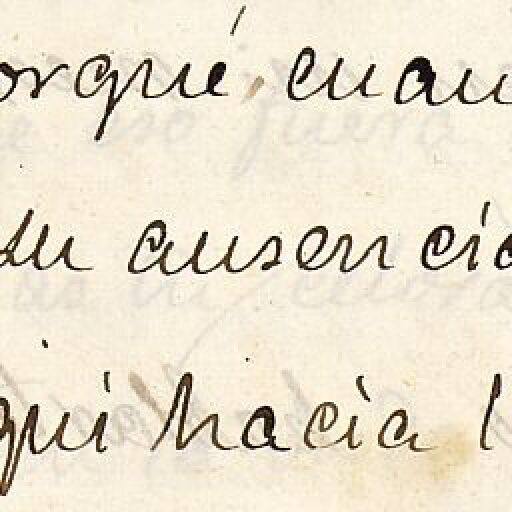 orqué, cuan
su ausencia
qui hacia l